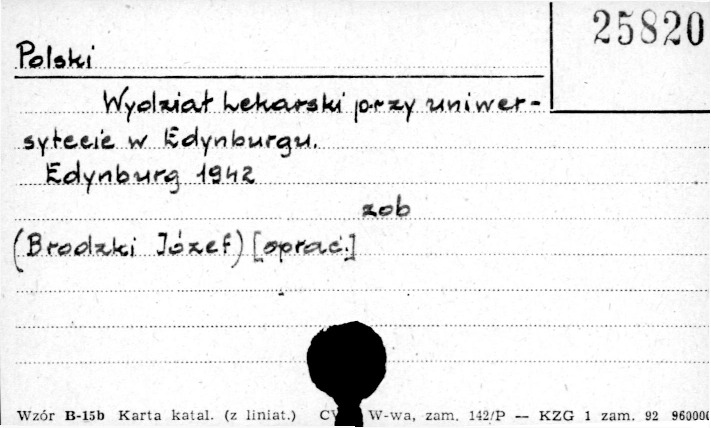 25820
Polski
Wydział Lekarski przy uniwer-
sytecie w Edynburgu.
Edynburg 1942
zob
(Brodzki Józef) [oprac.]
Wzór B-15b Karta katal. (z liniat.) W-wa, zam. 142/P — KZG 1 zam. 92